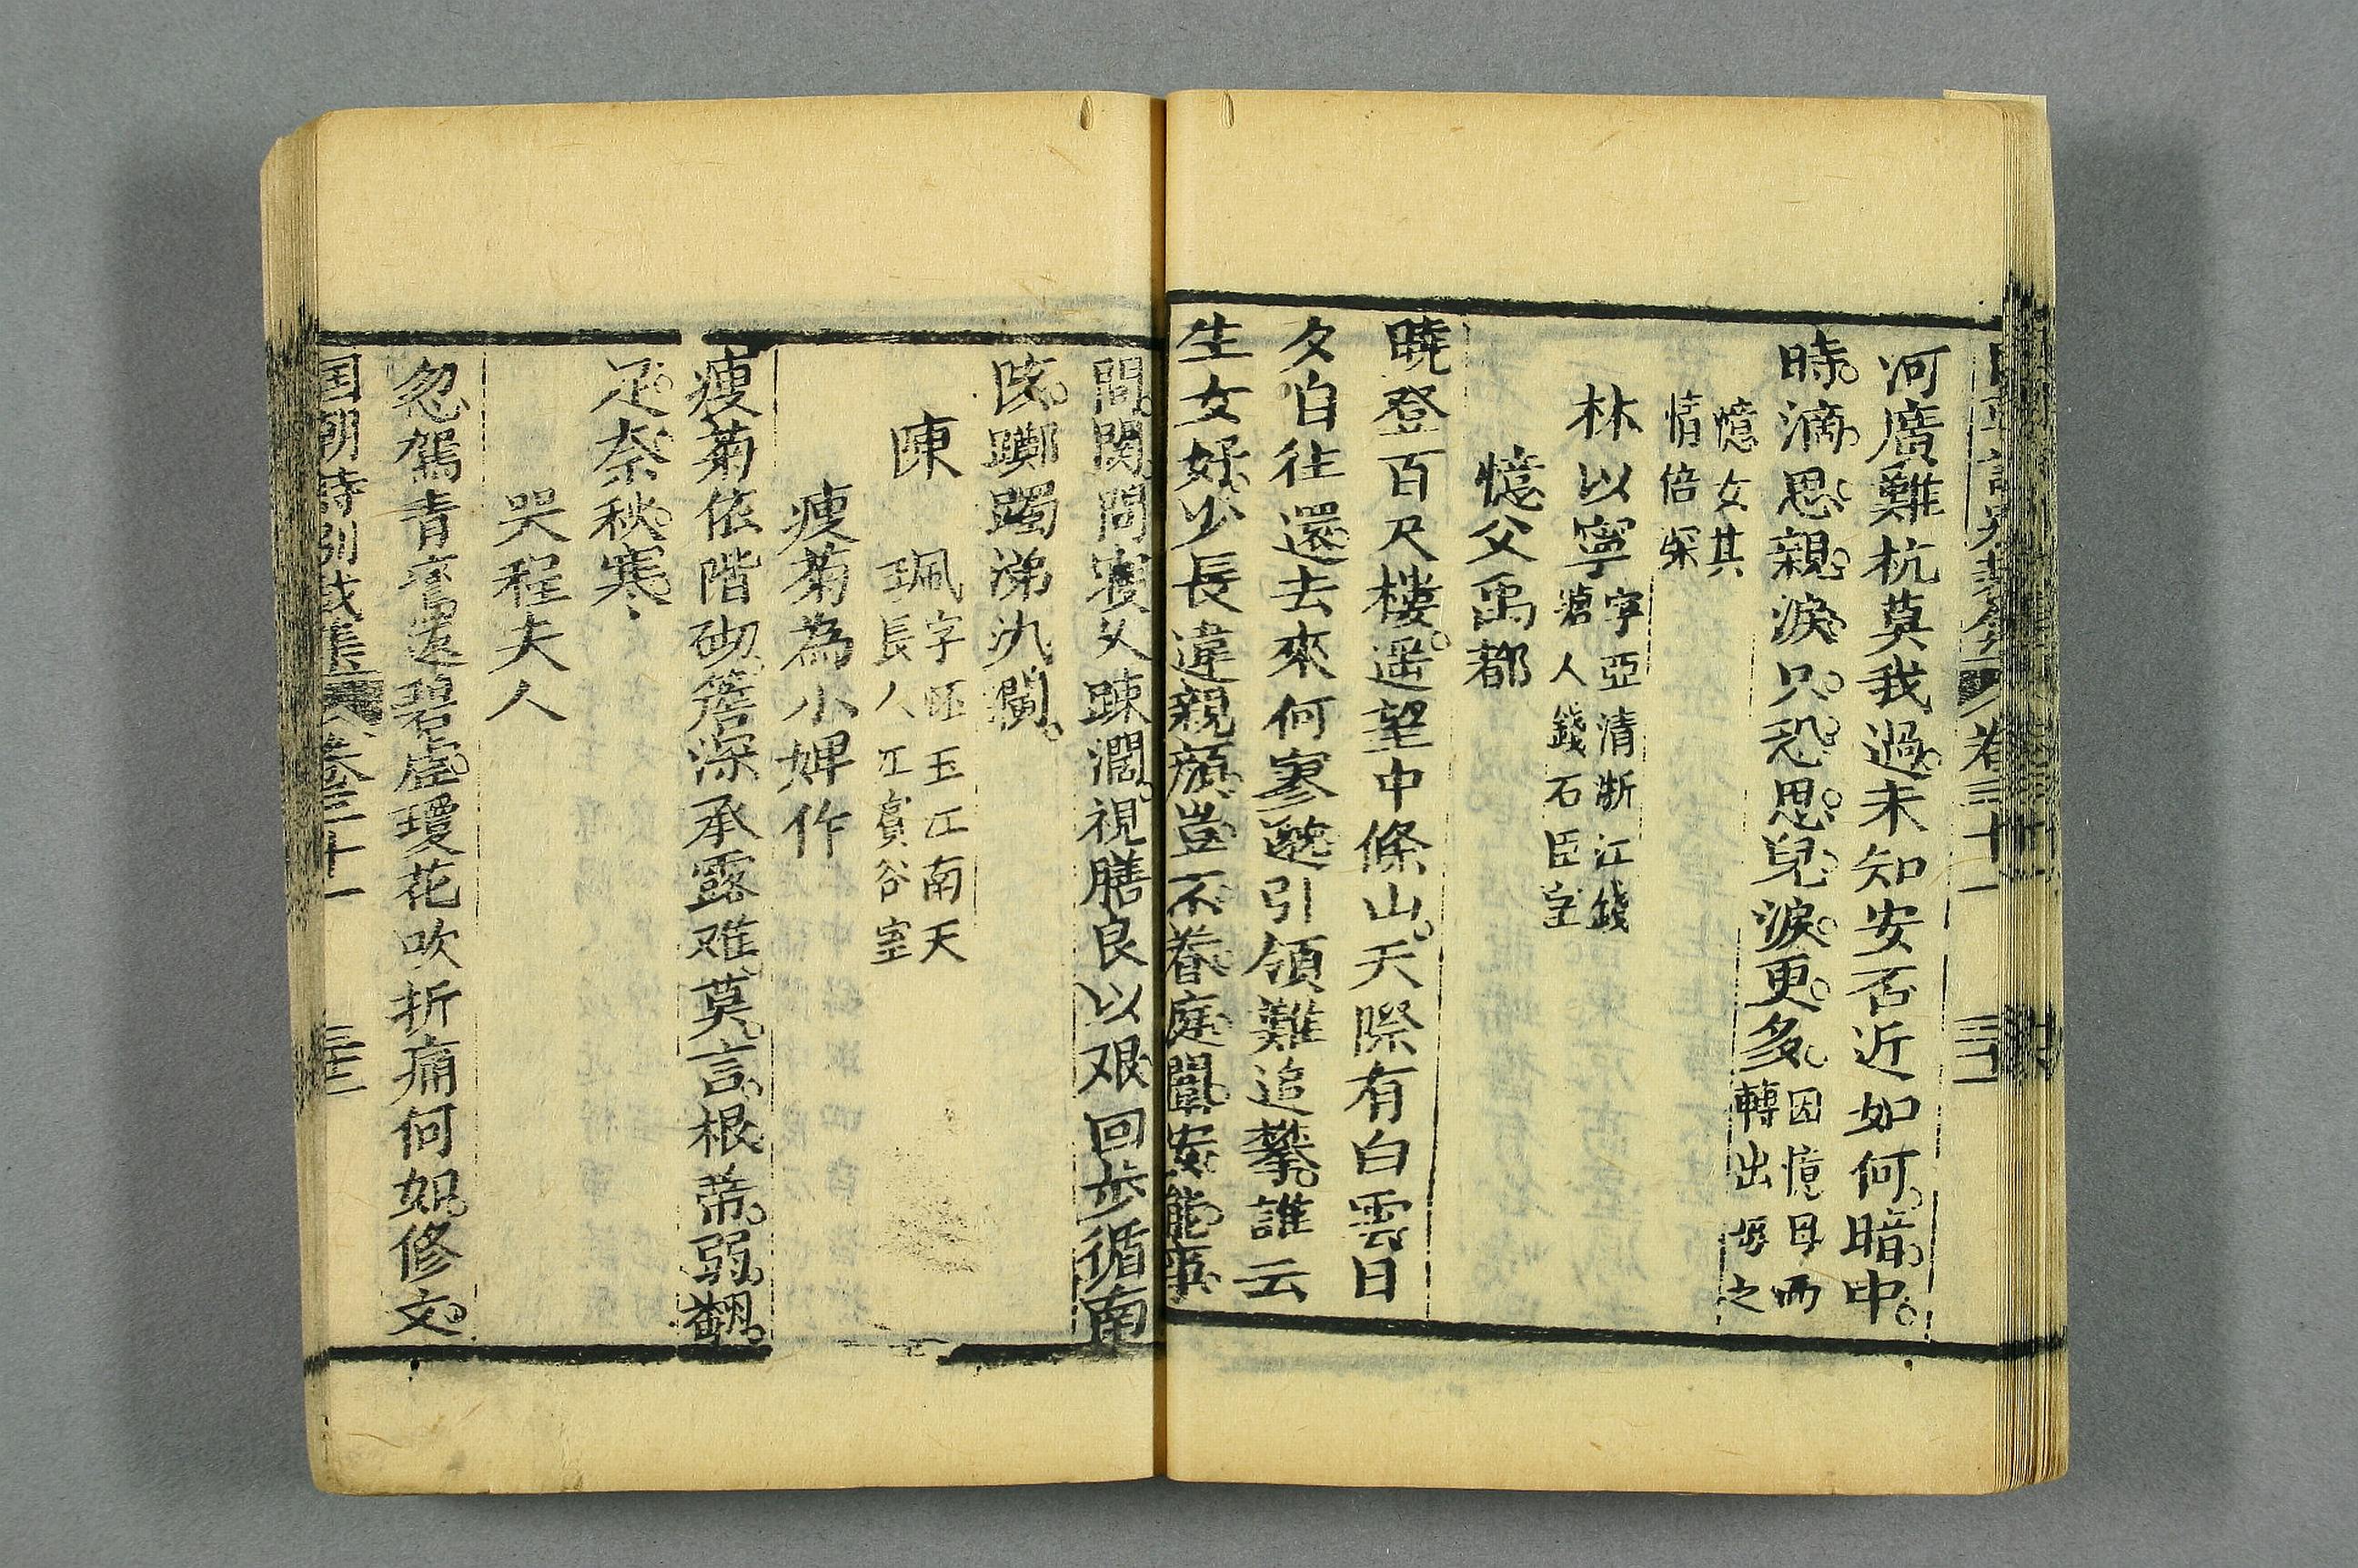 河廣難杭莫我過未知安否近如何暗中
時滴思親淚只恐思兒淚更多因憶母而
轉出母之
憶女其
情倍深
林以寧字亞清浙江錢
塘人錢石臣室
憶父禹都
曉登百尺樓遥望中條山天際有白雲日
夕自往還去來何寥邈引領難追攀誰云
生女好少長違親顔豈不眷庭闈安能事
問關問寢父踈濶視膳良以艰回步循南
陔躑躅涕汍瀾
陳珮字玉江南天
長人江賓谷室
瘦菊為小婢作
瘦菊依階砌簷深承露难莫言根蒂弱翻
足奈秋寒
哭程夫人
忽駕青鸞返碧虛瓊花吹折痛何如修文
国朝詩别裁集 卷三十一 三十二